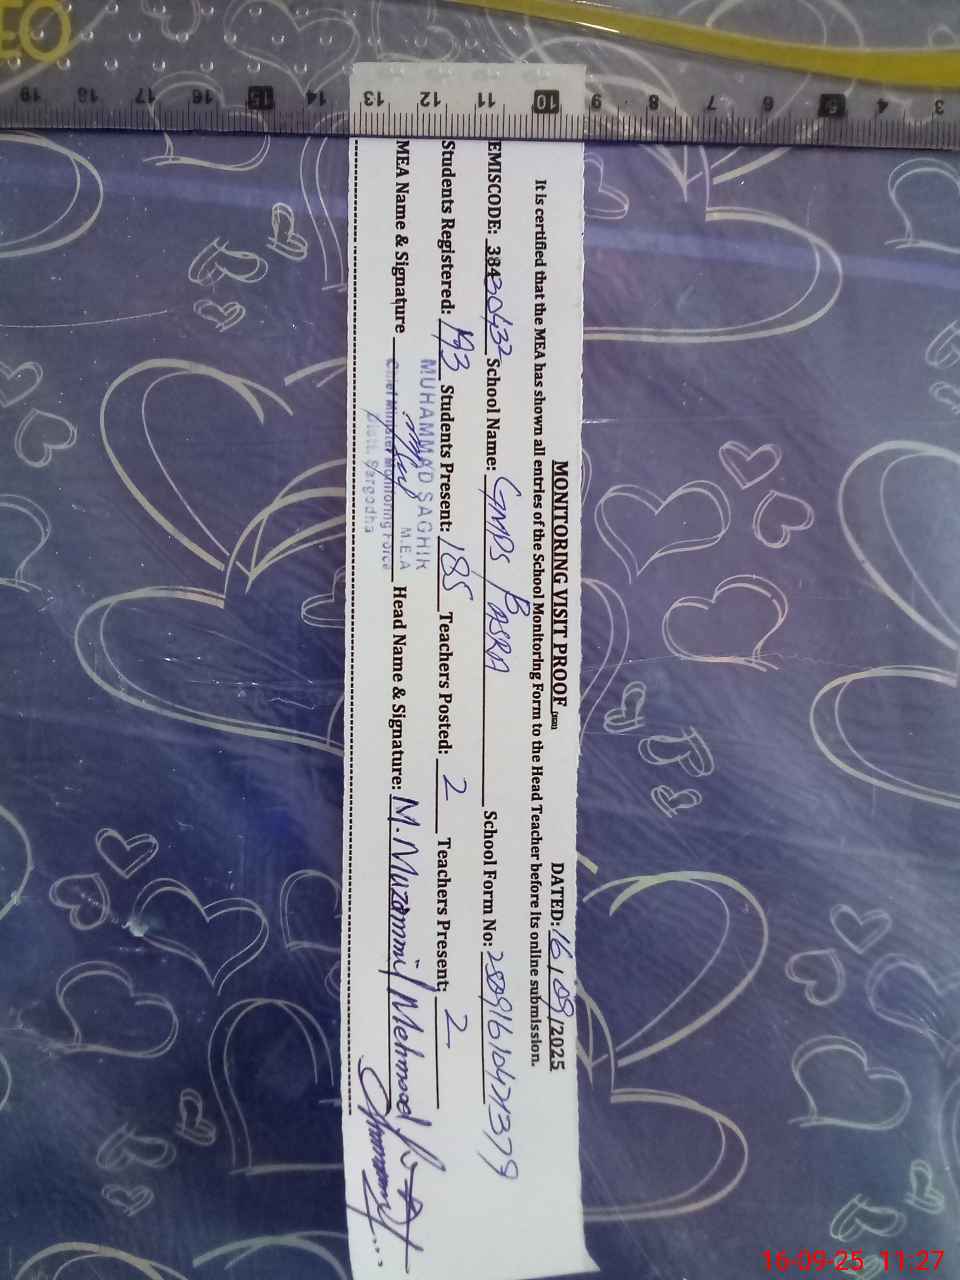 MONITORING VISIT PROOF DATED: 16/09/2025
It is certified that the MEA has shown all entries of the School Monitoring Form to the Head Teacher before its online submission.
EMISCODE: 38430432 School Name: GMPS BASRA School Form No:
Students Registered: 193 Students Present: 185 Teachers Posted: 2 Teachers Present: 2
MEA Name & Signature Head Name & Signature: M. Muzammil Mehmood
MUHAMMAD SAGHIR
M.E.A
Chief Minister Monitoring Force
Distt. Sargodha
19 18 17 16 15 14 13 12 11 10 9 8 7 6 5 4 3
16-09-25 11:27